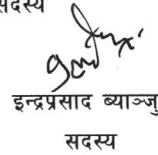 सदस्य
इन्द्रप्रसाद ब्याञ्जु
सदस्य